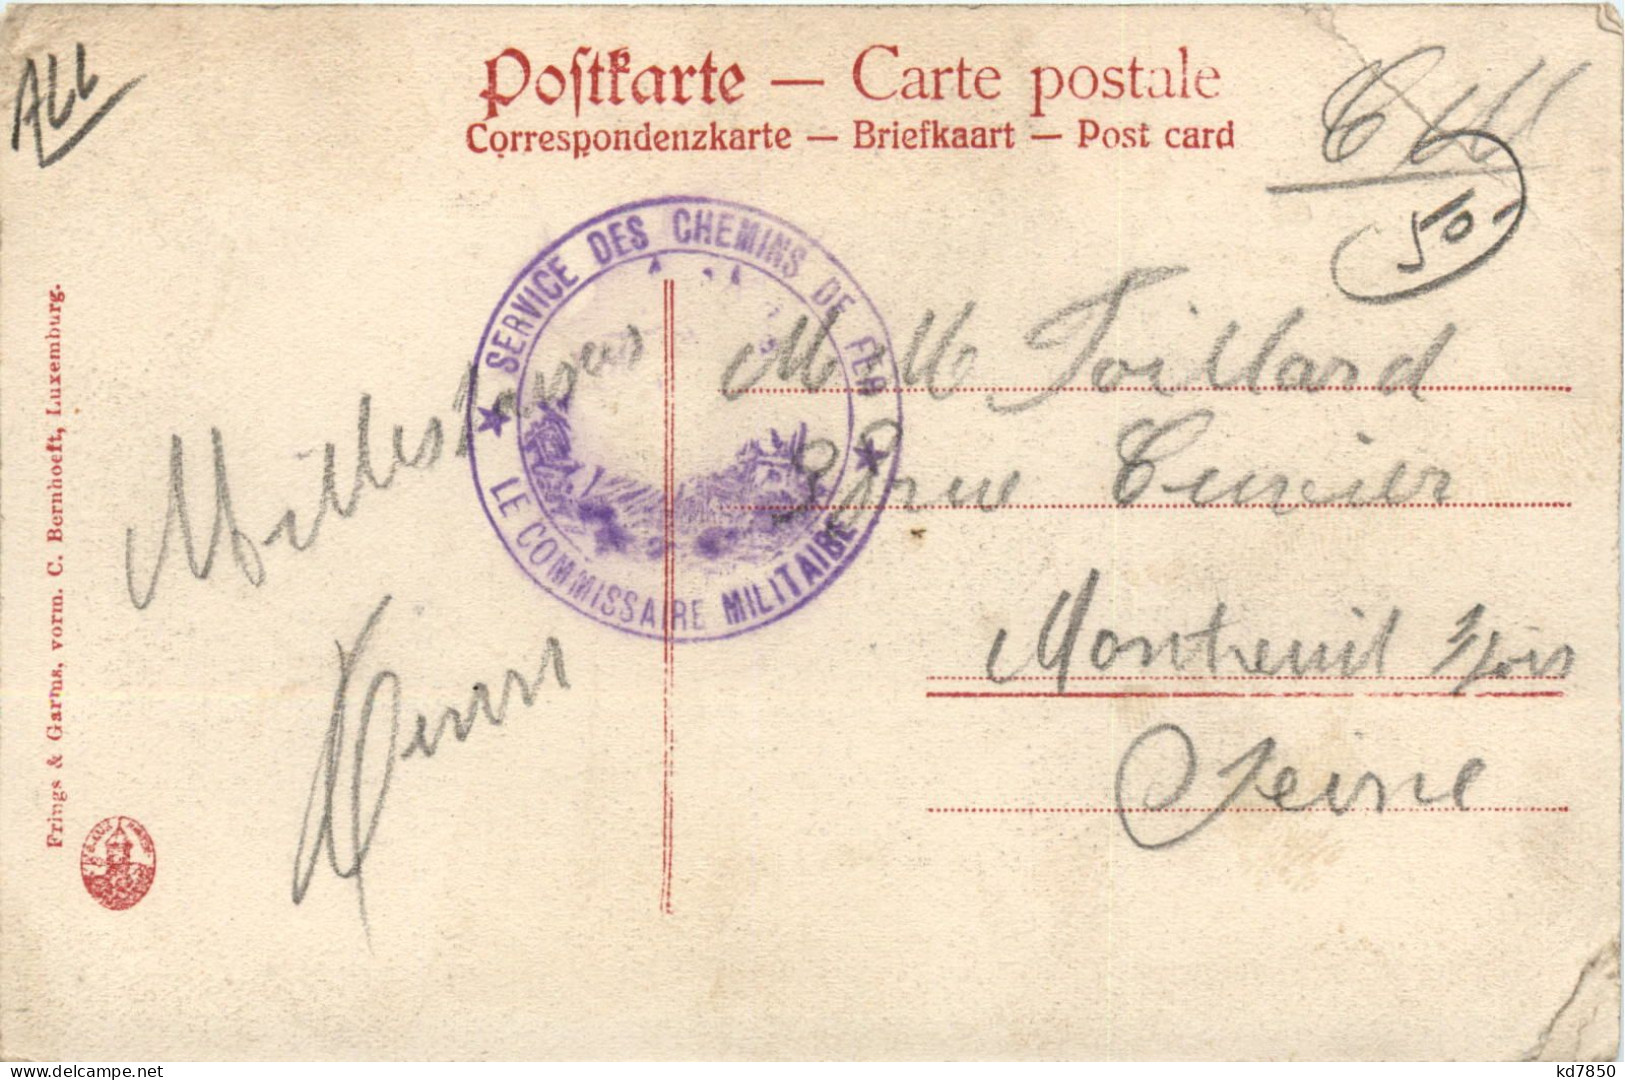 ALL
Postkarte — Carte postale
Correspondenzkarte — Briefkaart — Post card
50
SERVICE DES CHEMINS DE FER
LE COMMISSAIRE MILITAIRE
Frings & Garms, vorm. C. Bernhoeft, Luxemburg.
Mille
M M Toillard
39 rue Cuvier
Montreuil s/bois
Seine
kd7850